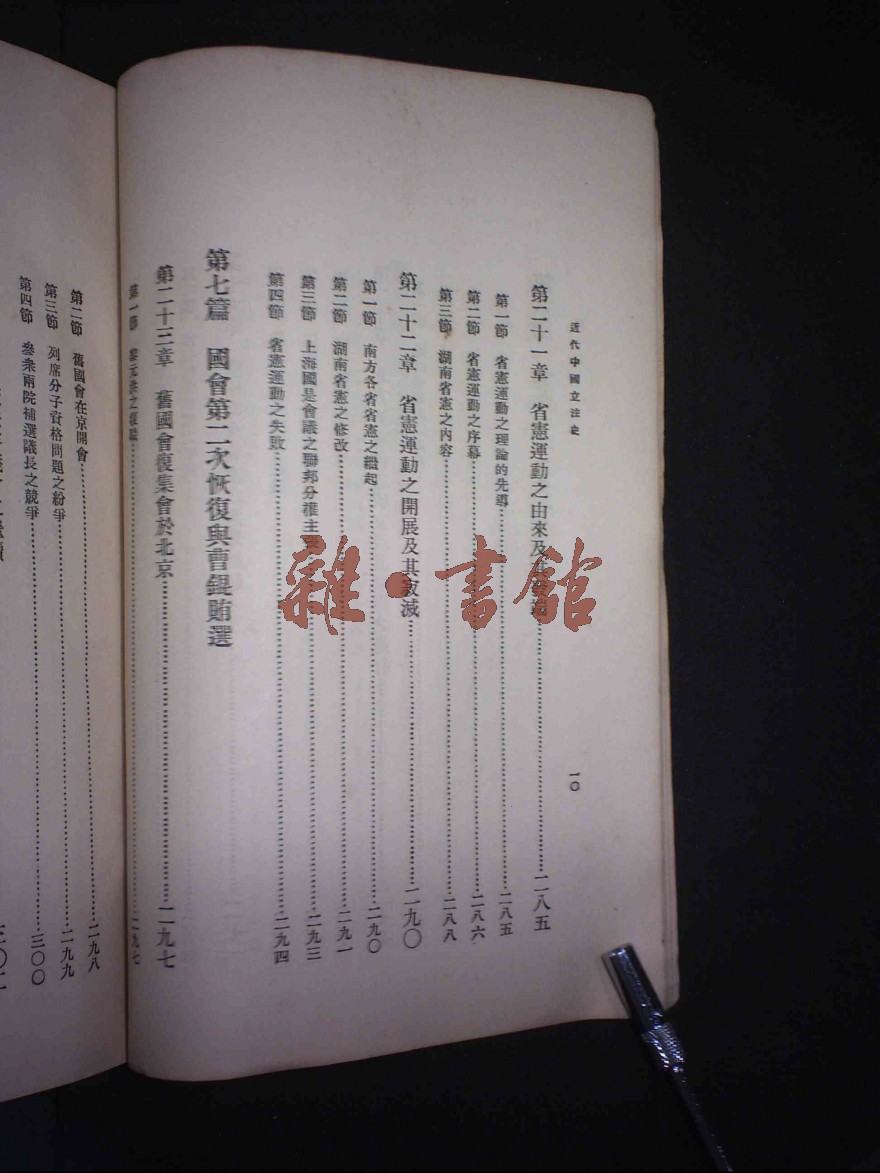 近代中國立法史
一〇
第二十一章 省憲運動之由來及其……二八五
第一節 省憲運動之理論的先導……二八五
第二節 省憲運動之序幕……二八六
第三節 湖南省憲之內容……二八八
第二十二章 省憲運動之開展及其寂滅……二九〇
第一節 南方各省省憲之繼起……二九〇
第二節 湖南省憲之修改……二九一
第三節 上海國是會議之聯邦分權主……二九三
第四節 省憲運動之失敗……二九四
第七篇 國會第二次恢復與曹錕賄選
第二十三章 舊國會復集會於北京……二九七
第一節 黎元洪之復職……二九七
第二節 舊國會在京開會……二九八
第三節 列席分子資格問題之紛爭……二九九
第四節 參衆兩院補選議長之競爭……三〇〇
雜·書館